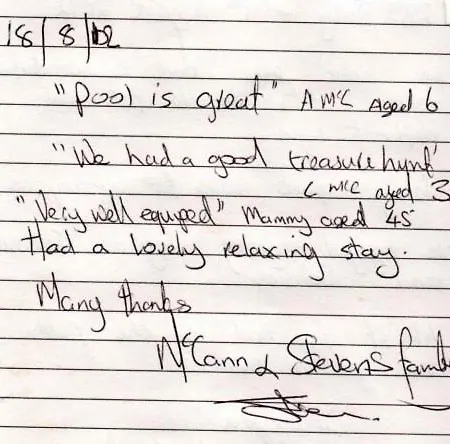 18/8/02
"Pool is great" A McC Aged 6
"We had a good treasure hunt'
C McC aged 3
"Very well equiped" Mammy aged 45
Had a lovely relaxing stay.
Many thanks
McCann & Stevens famil